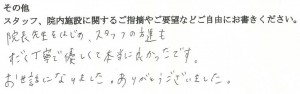 その他
スタッフ、院内施設に関するご指摘やご要望などご自由にお書きください。
院長先生をはじめ、スタッフの方達も
すごく丁寧で優しくて本当に良かったです。
お世話になりました。ありがとうございました。